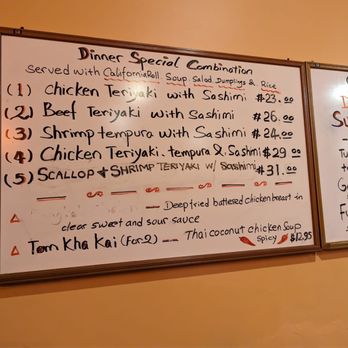 Dinner Special Combination
Served with California Roll Soup Salad Dumplings & Rice
(1) Chicken Teriyaki with Sashimi $23.00
(2) Beef Teriyaki with Sashimi $26.00
(3) Shrimp tempura with Sashimi $24.00
(4) Chicken Teriyaki. tempura & Sashimi $29.00
(5) SCALLOP & SHRIMP TERIYAKI W/ Sashimi $31.00
Deep fried battered chicken breast in
clear sweet and sour sauce
Tom Kha Kai (For 2) --- Thai coconut chicken Soup
Spicy $12.95